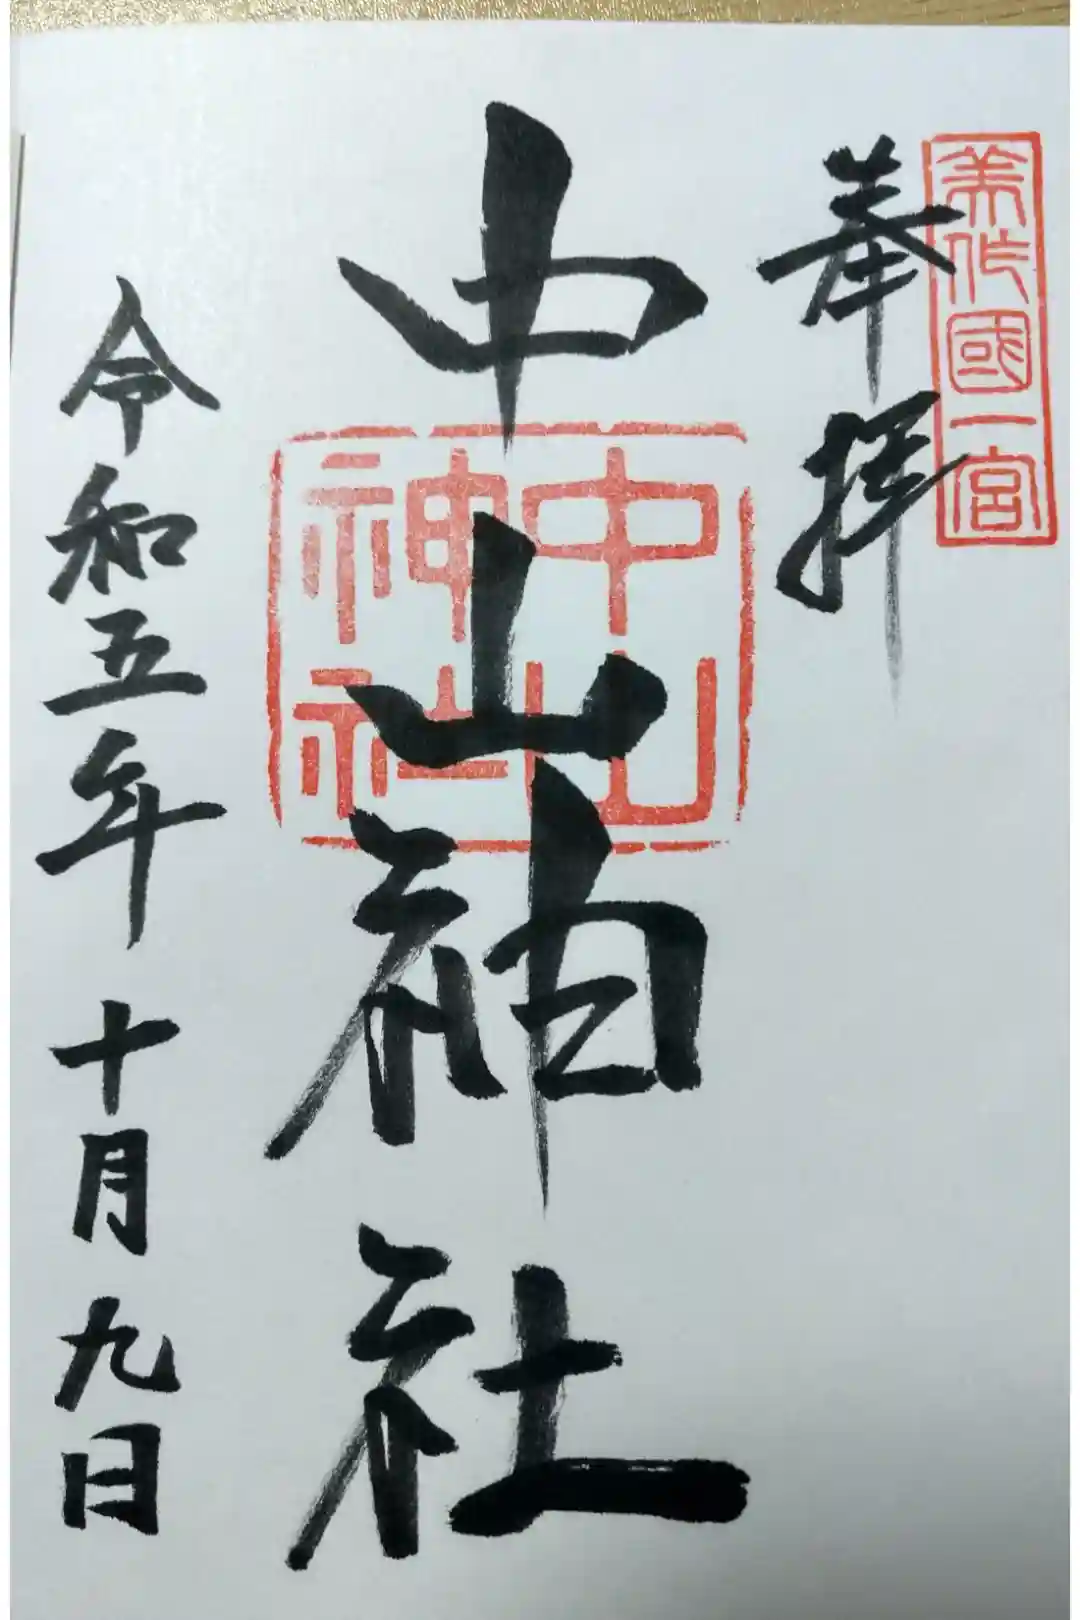 美作國一宮
奉拝
中山神社
中山
神社
令和五年十月九日